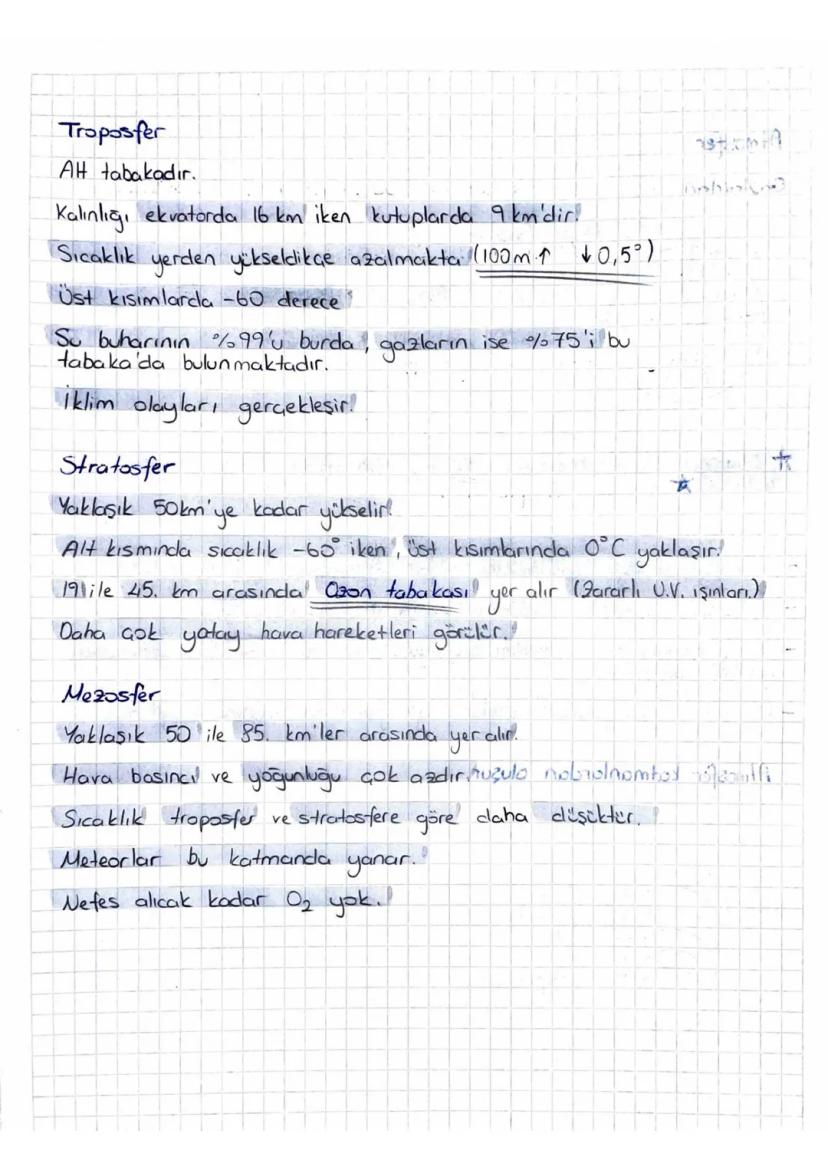 Troposfer
Alt tabakadır.
Kalınlığı ekvatorda 16 km iken kutuplarda 9 km'dir.
Sıcaklık yerden yükseldikçe azalmakta (100m ↑ ↓ 0,5°)
Üst kısımlarda -60 derece
Su buharının %99'u burda, gazların ise %75'i bu
tabaka'da bulunmaktadır.
İklim olayları gerçekleşir.
Stratosfer
Yaklaşık 50km'ye kadar yükselir.
Alt kısmında sıcaklık -60° iken, üst kısımlarında 0°C yaklaşır.
19 ile 45. km arasında Ozon tabakası yer alır (Zararlı U.V. ışınları.)
Daha çok yatay hava hareketleri görülür.
Mezosfer
Yaklaşık 50 ile 85. km'ler arasında yer alır.
Hava basıncı ve yoğunluğu çok azdır.
Sıcaklık troposfer ve stratosfere göre daha düşüktür.
Meteorlar bu katmanda yanar.
Nefes alıcak kadar O₂ yok.